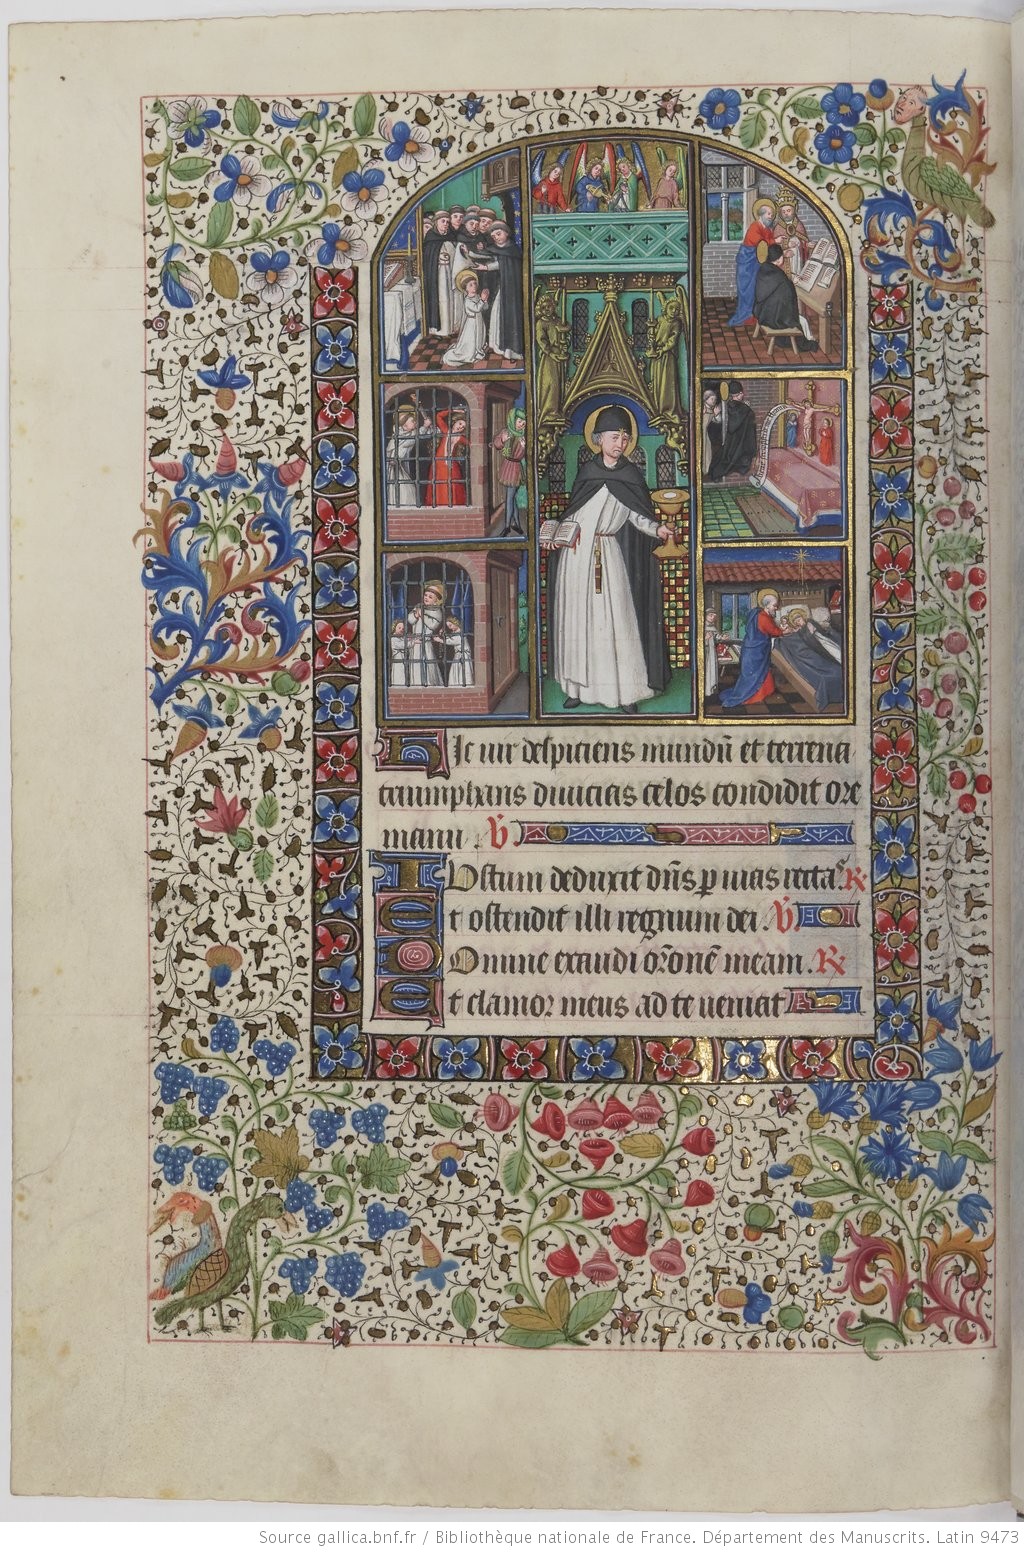 Hic uir despiciens mundũ et terrena
triumphans diuicias celos condidit ore
manu. V̾
Iustum deduxit dñs p uias rectas. R̾
Et ostendit illi regnum dei. V̾
Domine exaudi or̃onẽ meam. R̾
Et clamor meus ad te ueniat
Source gallica.bnf.fr / Bibliothèque nationale de France. Département des Manuscrits. Latin 9473